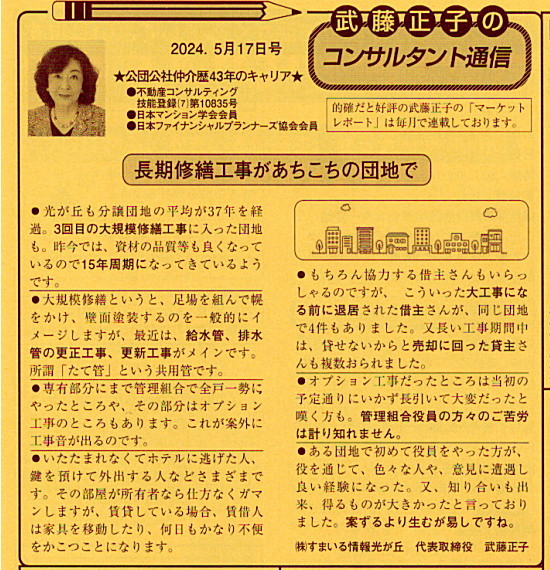 武藤正子の
コンサルタント通信
2024. 5月17日号
★公団公社仲介歴43年のキャリア★
●不動産コンサルティング
技能登録(7)第10835号
●日本マンション学会会員
●日本ファイナンシャルプランナーズ協会会員
的確だと好評の武藤正子の「マーケット
レポート」は毎月で連載しております。
長期修繕工事があちこちの団地で
●光が丘も分譲団地の平均が37年を経
過。3回目の大規模修繕工事に入った団地
も。昨今では、資材の品質等も良くなって
いるので15年周期になってきているよう
です。
●大規模修繕というと、足場を組んで幌
をかけ、壁面塗装するのを一般的にイ
メージしますが、最近は、給水管、排水
管の更正工事、更新工事がメインです。
所謂「たて管」という共用管です。
●専有部分にまで管理組合で全戸一勢に
やったところや、その部分はオプション
工事のところもあります。これが案外に
工事音が出るのです。
●いたたまれなくてホテルに逃げた人、
鍵を預けて外出する人などさまざまで
す。その部屋が所有者なら仕方なくガマ
ンしますが、賃貸している場合、賃借人
は家具を移動したり、何日もかなり不便
をかこつことになります。
●もちろん協力する借主さんもいらっ
しゃるのですが、こういった大工事にな
る前に退居された借主さんが、同じ団地
で4件もありました。又長い工事期間中
は、貸せないからと売却に回った貸主さ
んも複数おられました。
●オプション工事だったところは当初の
予定通りにいかず長引いて大変だったと
嘆く方も。管理組合役員の方々のご苦労
は計り知れません。
●ある団地で初めて役員をやった方が、
役を通じて、色々な人や、意見に遭遇し
良い経験になった。又、知り合いも出
来、得るものが大きかったと言っており
ました。案ずるより生むが易しですね。
㈱すまいる情報光が丘 代表取締役 武藤正子